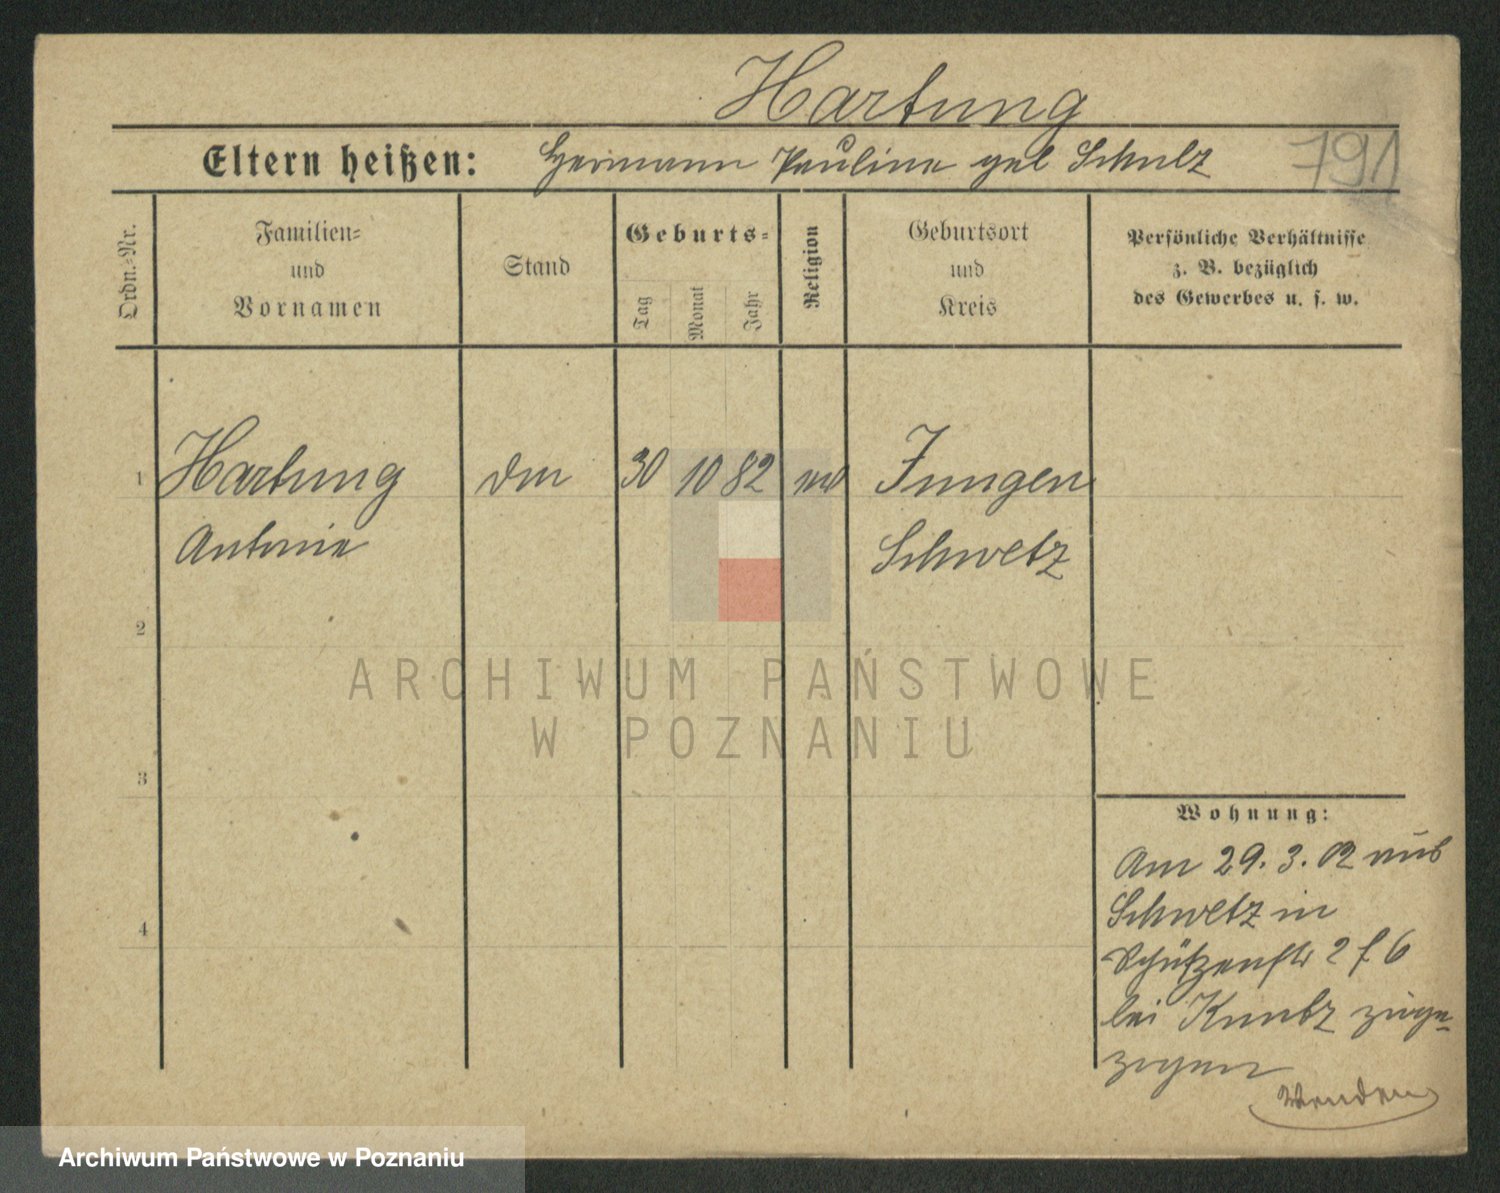 Hartung
Eltern heißen: Hermann Pauline geb Schulz
791
Ordn.=Nr.
Familien=
und
Vornamen
Stand
Geburts=
Tag
Monat
Jahr
Religion
Geburtsort
und
Kreis
Persönliche Verhältnisse
z. B. bezüglich
des Gewerbes u. s. w.
1
Hartung
30 10 82
Jungen
Antonie
Schwetz
2
ARCHIWUM PAŃSTWOWE
W POZNANIU
3
Wohnung:
Am 29. 3. 02 aus
Schwetz in
Schützenstr 2 f 6
bei Kuntz zuge=
zogen
4
Wenden
Archiwum Państwowe w Poznaniu